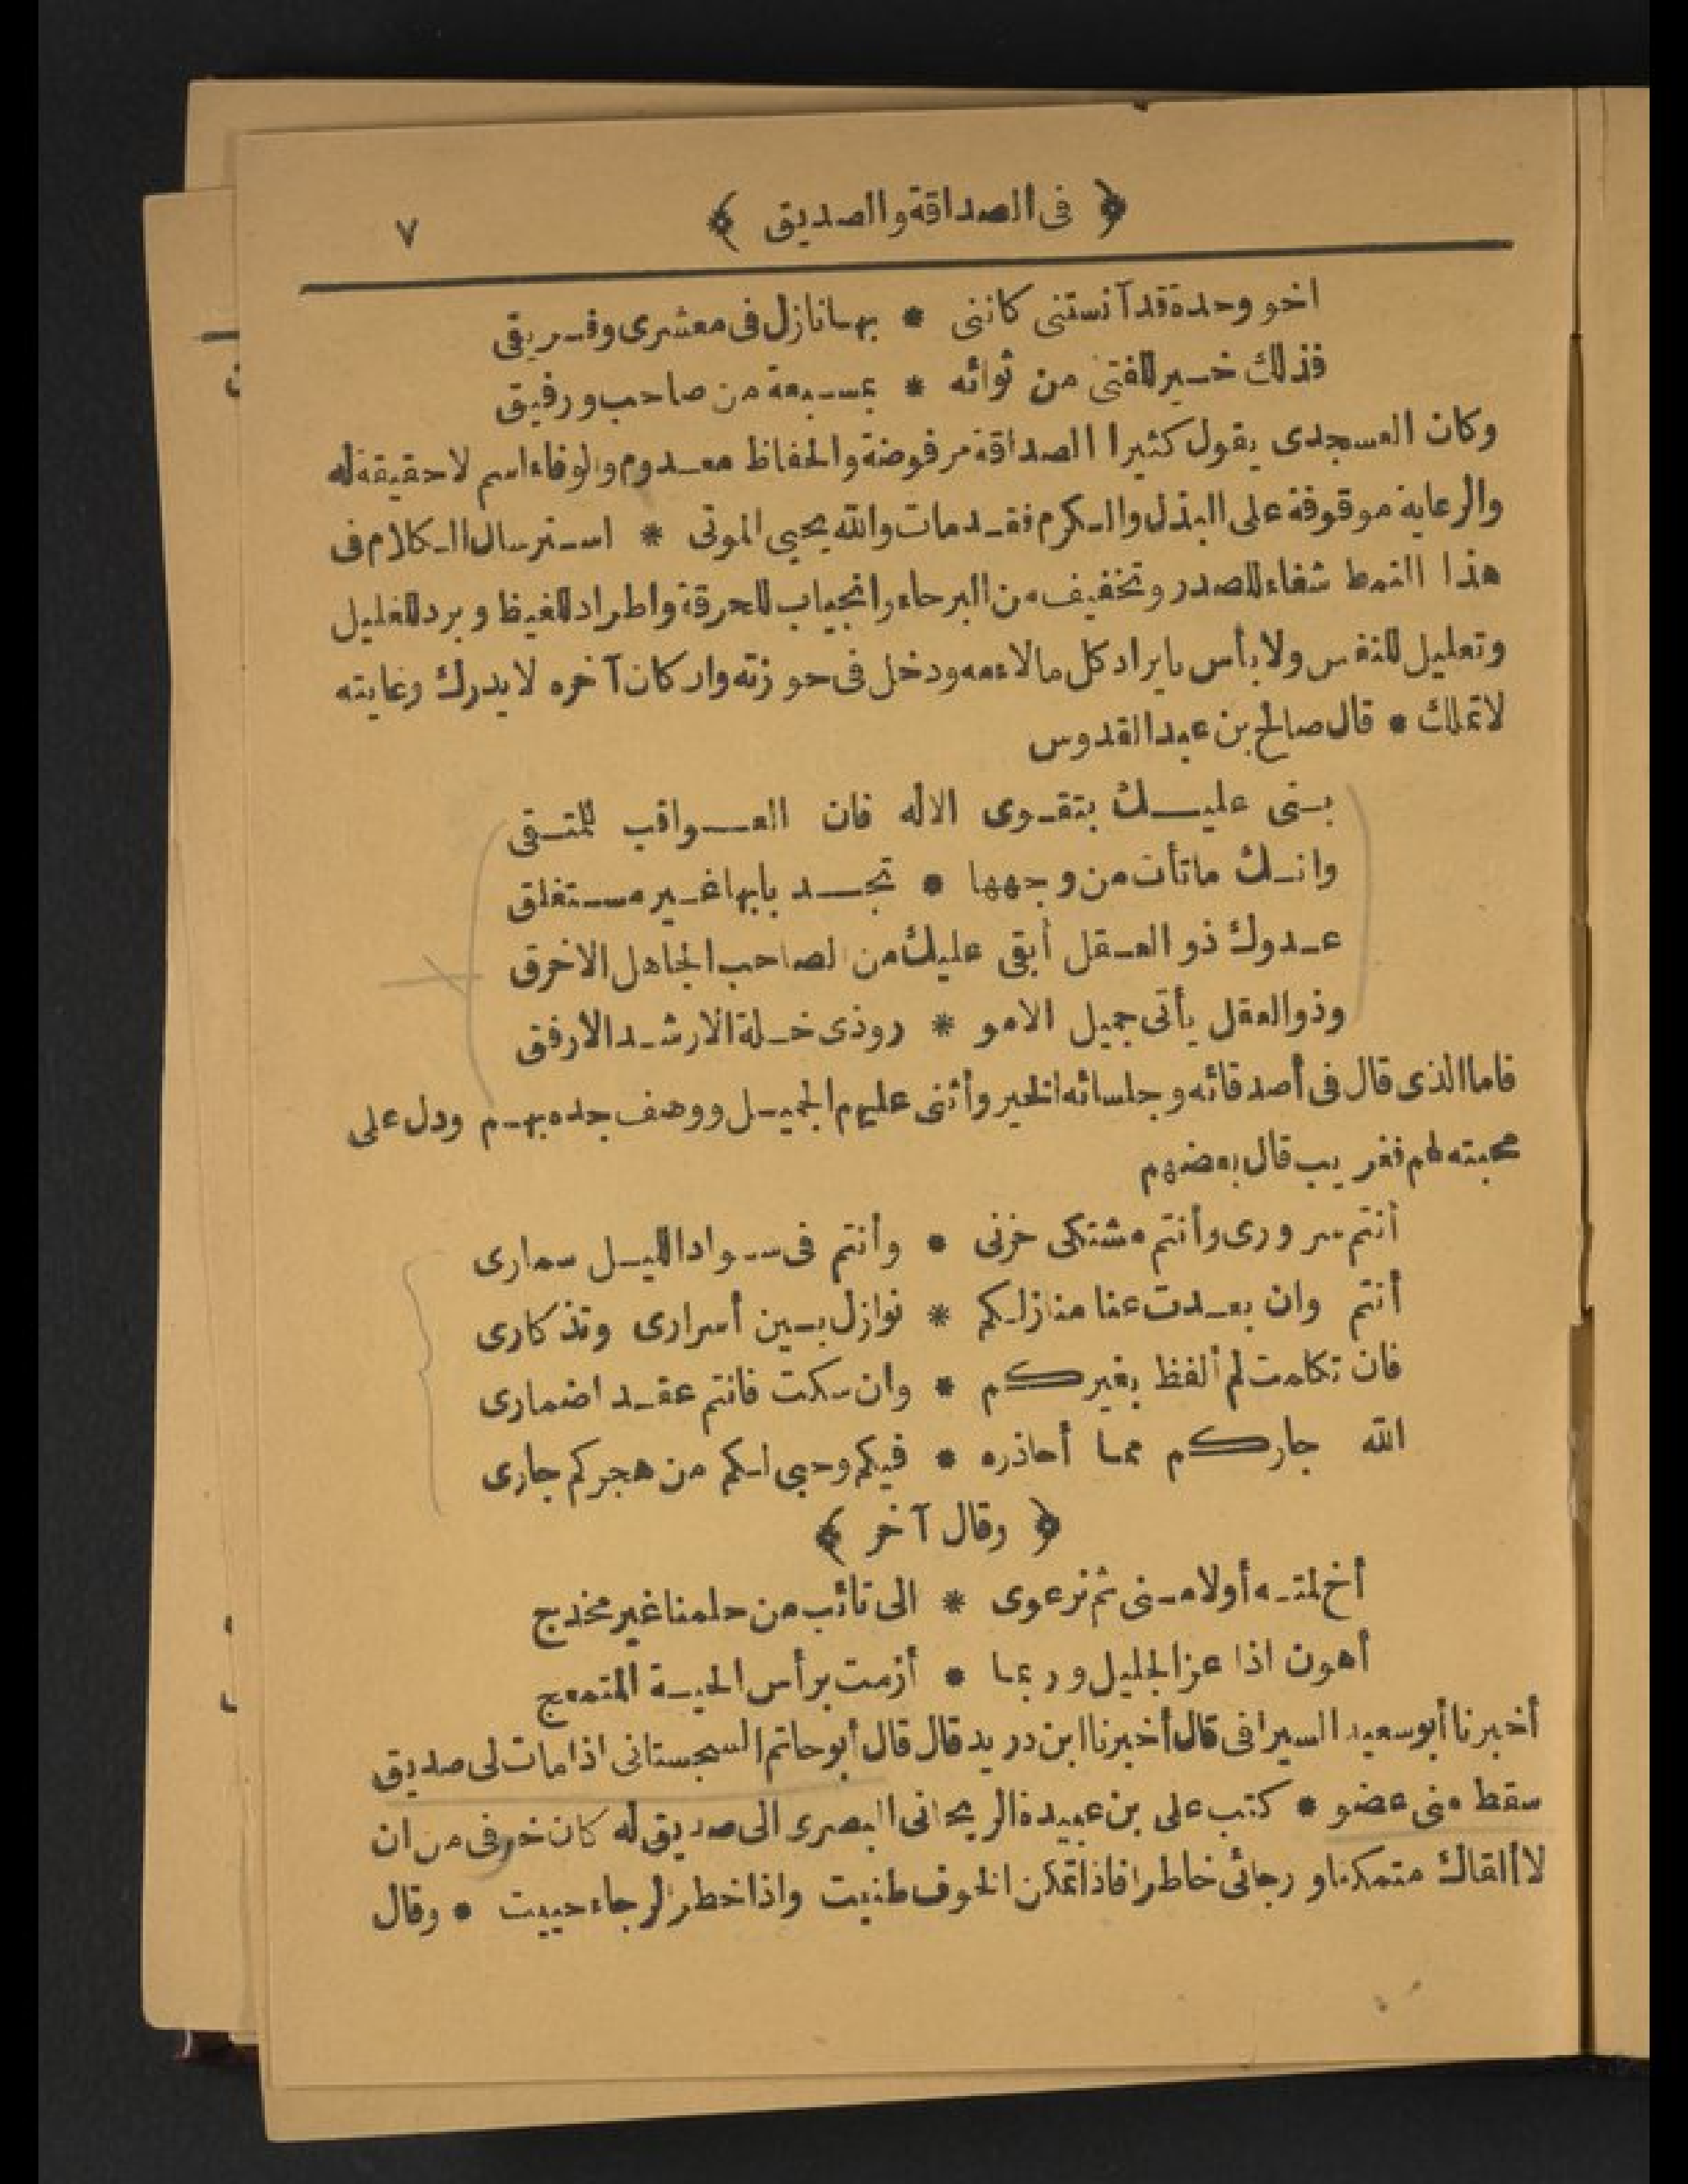 ﴿ فى الصداقة والصديق ﴾ ٧
اخو وحدة قد آنستنى كاننى * بها نازل فى معشرى وفريقى
فذلك خير للفتى من ثوائه * بمسبعة من صاحب ورفيق
وكان العسجدى يقول كثيرا الصداقة مرفوضة والحفاظ معدوم والوفاء اسم لا حقيقة له
والرعاية موقوفة على البذل والكرم فقد مات والله يحيى الموتى * استرسال الكلام فى
هذا النمط شفاء للصدر وتخفيف من البرحاء وانجياب للحرقة واطراد للغيظ وبرد للغليل
وتعليل للنفس ولا بأس بايراد كل ما لاءمه ودخل فى حوزته وان كان آخره لا يدرك وغايته
لا تملك * قال صالح بن عبد القدوس
بنى عليك بتقوى الاله فان العواقب للمتقى
وانك ما تأت من وجهها * تجد بابها غير مستغلق
عدوك ذو العقل أبقى عليك من الصاحب الجاهل الاخرق
وذو العقل يأتى جميل الامو * ر وذى خلة الارشد الارفق
فاما الذى قال فى أصدقائه وجلسائه الخير وأثنى عليهم الجميل ووصف جده بهم ودل على
محبته لهم فغريب قال بعضهم
أنتم سرورى وأنتم مشتكى حزنى * وأنتم فى سواد الليل سمارى
أنتم وان بعدت عنا منازلكم * نوازل بين أسرارى وتذكارى
فان تكلمت لم ألفظ بغيركم * وان سكت فانتم عقد اضمارى
الله جاركم مما أحاذره * فيكم وحبى لكم من هجركم جارى
﴿ وقال آخر ﴾
أخ لمته أو لامنى ثم نرعوى * الى تائب من حلمنا غير مخدج
أهون اذا عز الجليل وربما * أزمت برأس الحية المتمعج
أخبرنا أبو سعيد السيرافى قال أخبرنا ابن دريد قال قال أبو حاتم السجستانى اذا مات لى صديق
سقط منى عضو * كتب على بن عبيدة الريحانى البصرى الى صديق له كان خوفى من ان
لا ألقاك متمكنا ورجائى خاطرا فاذا تمكن الخوف طنيت واذا خطر الرجاء حييت * وقال